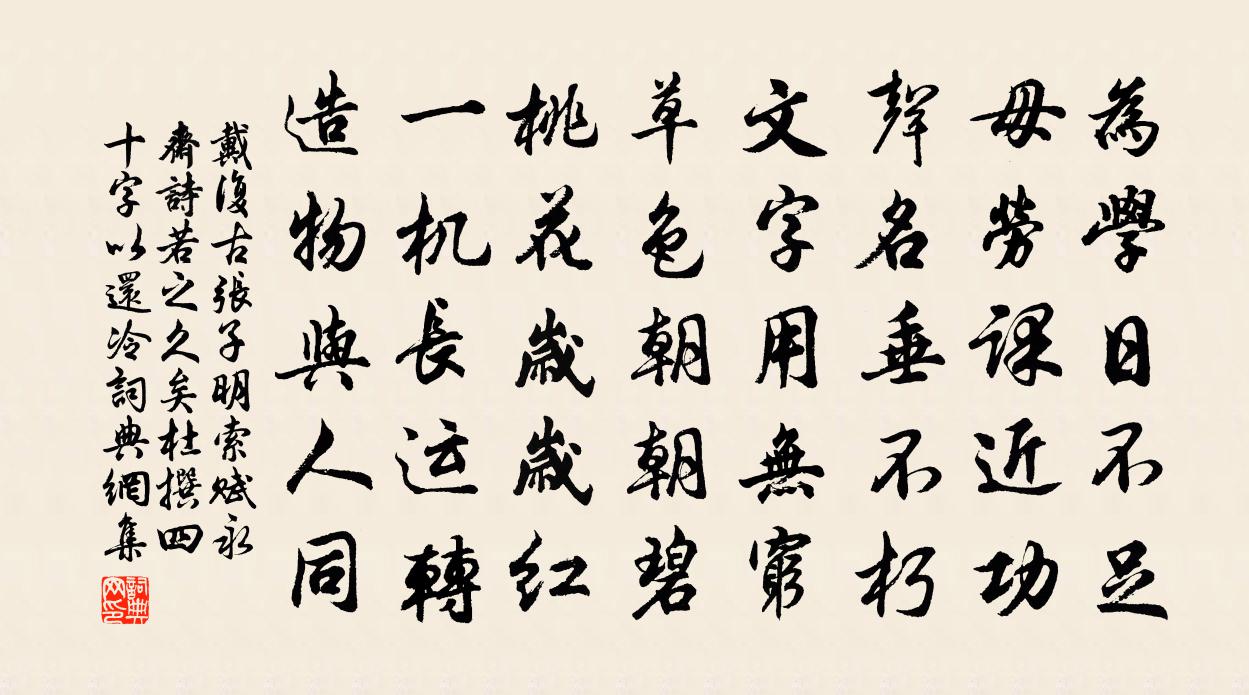 為學日不足
毋勞課近功
聲名垂不朽
文字用無窮
草色朝朝碧
桃花歲歲红
一机長运轉
造物與人同
戴復古張子明索賦永
齋詩若之久矣杜撰四
十字以還冷詞典網集
詞典
网印